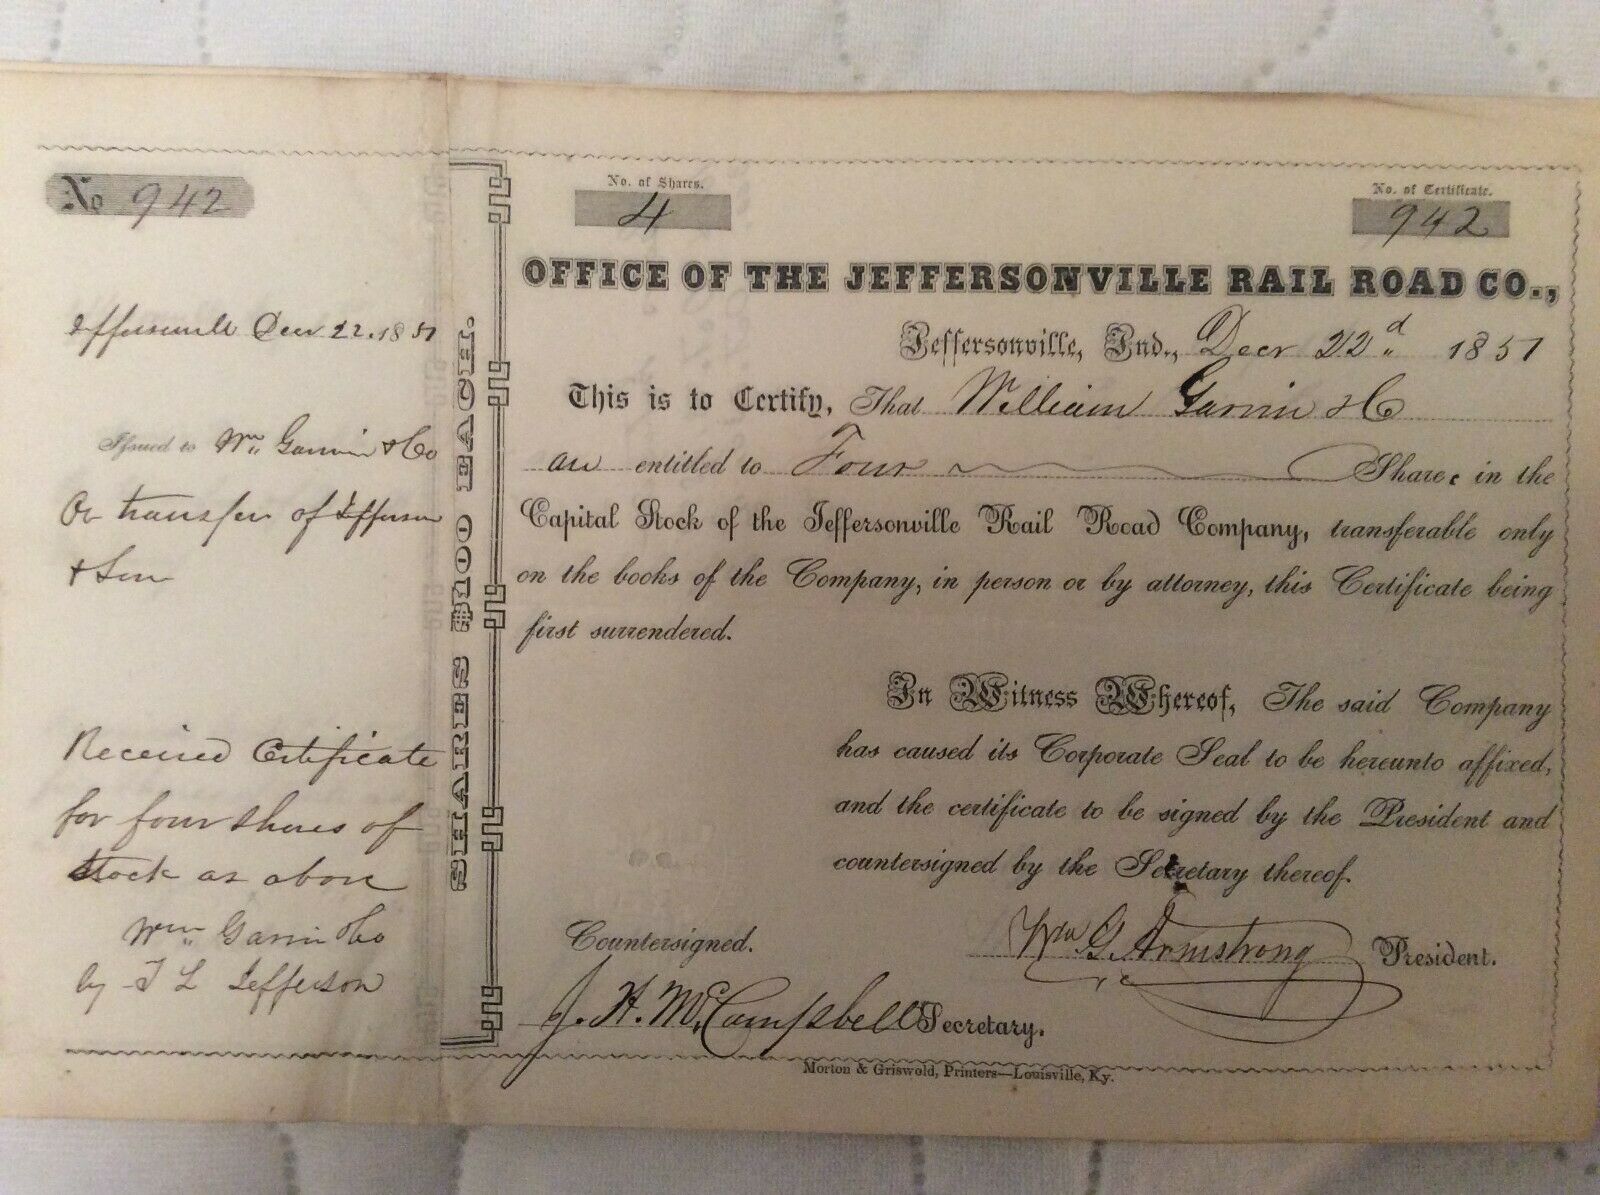 No 942
Jeffersonville Decr 22. 1851
Issued to Wm Garvin & Co
On transfer of Jefferson
& Son
Received Certificate
for four shares of
stock as above
Wm Garvin & Co
by T L Jefferson
SHARES $100 EACH.
No. of Shares.
4
No. of Certificate.
942
OFFICE OF THE JEFFERSONVILLE RAIL ROAD CO.,
Jeffersonville, Ind., Decr 22d 1851
This is to Certify, That William Garvin & Co
are entitled to Four Shares in the
Capital Stock of the Jeffersonville Rail Road Company, transferable only
on the books of the Company, in person or by attorney, this Certificate being
first surrendered.
In Witness Whereof, The said Company
has caused its Corporate Seal to be hereunto affixed,
and the certificate to be signed by the President and
countersigned by the Secretary thereof.
Wm G. Armstrong President.
Countersigned.
J. H. McCampbell Secretary.
Morton & Griswold, Printers—Louisville, Ky.